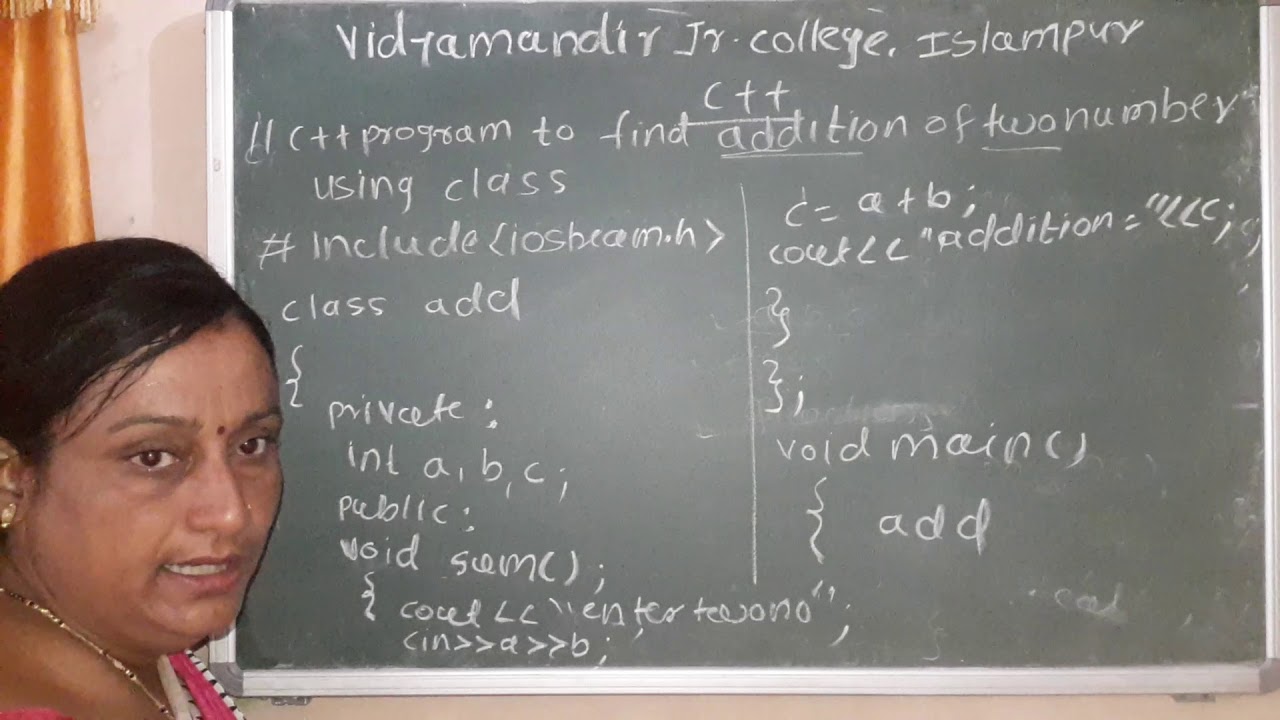 Vidyamandir Jr. college. Islampur
C++
// C++ program to find addition of two number
using class
# Include<iostream.h>
class add
{
private:
int a, b, c;
public:
void sum();
{ cout<< "enter two no";
cin>>a>>b;
c = a + b;
cout<< "addition = "<<c;
}
};
void main()
{ add